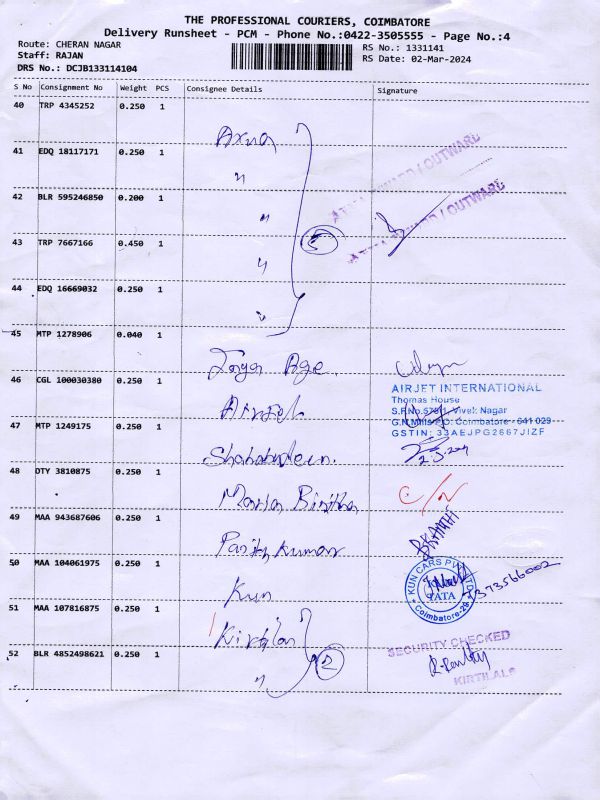 THE PROFESSIONAL COURIERS, COIMBATORE
Delivery Runsheet - PCM - Phone No.:0422-3505555 - Page No.:4
Route: CHERAN NAGAR
Staff: RAJAN
DRS No.: DCJB133114104
RS No.: 1331141
RS Date: 02-Mar-2024
S No Consignment No Weight PCS Consignee Details Signature
40 TRP 4345252 0.250 1
41 EDQ 18117171 0.250 1
"
42 BLR 595246850 0.200 1
"
43 TRP 7667166 0.450 1
"
44 EDQ 16669032 0.250 1
"
5
/ OUTWARD
/ OUTWARD
45 MTP 1278906 0.040 1
Jaya Age
46 CGL 100030380 0.250 1
Airjet
AIRJET INTERNATIONAL
Thomas House
S.F.No.578/1, Vivek Nagar
G.N.Mills P.O. Coimbatore - 641 029
GSTIN: 33AEJPG2667J1ZF
47 MTP 1249175 0.250 1
48 DTY 3810875 0.250 1
Maria Bintha
C/N
49 MAA 943687606 0.250 1
Kumar
50 MAA 104061975 0.250 1
Kun
KUN CARS PVT LTD
TATA
Coimbatore-29
7373566002
51 MAA 107816875 0.250 1
Kirtilal
52 BLR 4852498621 0.250 1
"
2
SECURITY CHECKED
KIRTILALS